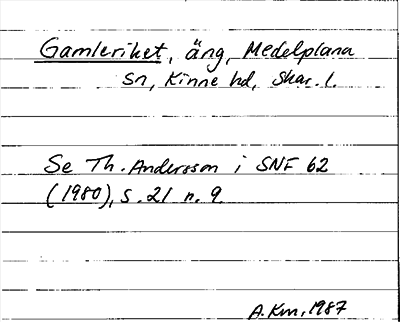 Gamleriket, äng, Medelplana
sn, Kinne hd, Skar. l.
Se Th. Andersson i SNF 62
(1980), s. 21 n. 9.
A. Km, 1987